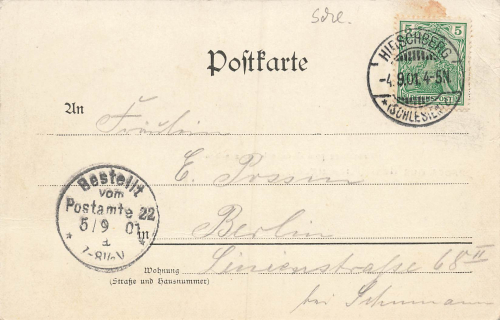 Schl.
5 5
HIRSCHBERG
-4.9.01.4-5N.
* (SCHLESIEN) *
Postkarte
An Fräulein
E. Possin
Bestellt
vom
Postamte 22
5/9 01
1
7-8½V
in Berlin
Wohnung Linienstraße 68 II
(Straße und Hausnummer)
bei Schumann